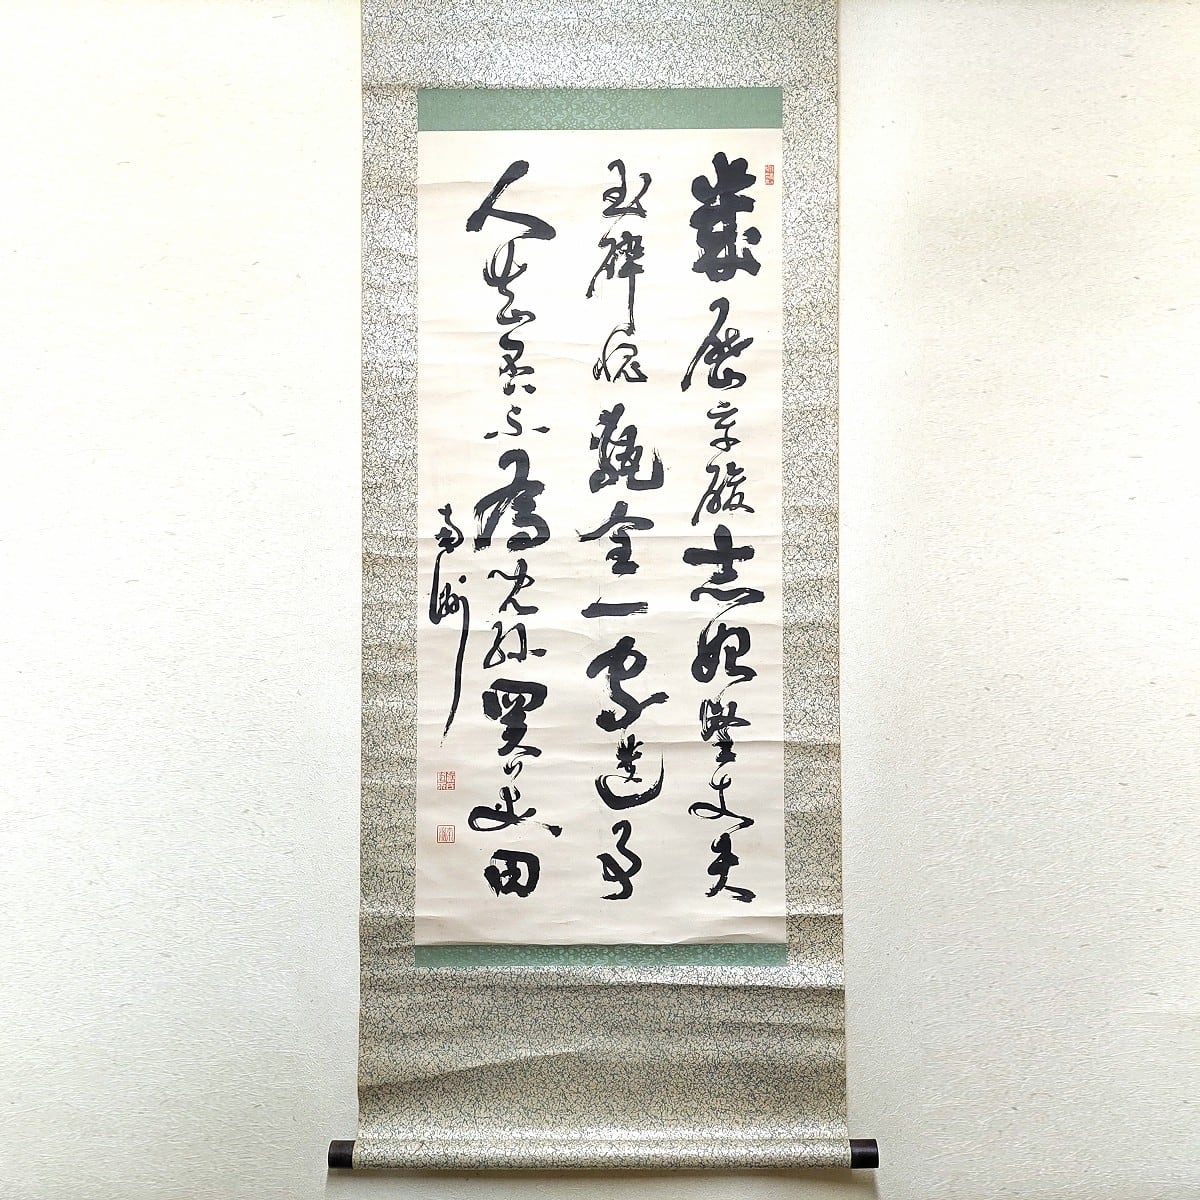 幾歷辛酸志始堅丈夫
玉碎愧甎全一家遺事
人知否不為兒孫買美田
南洲